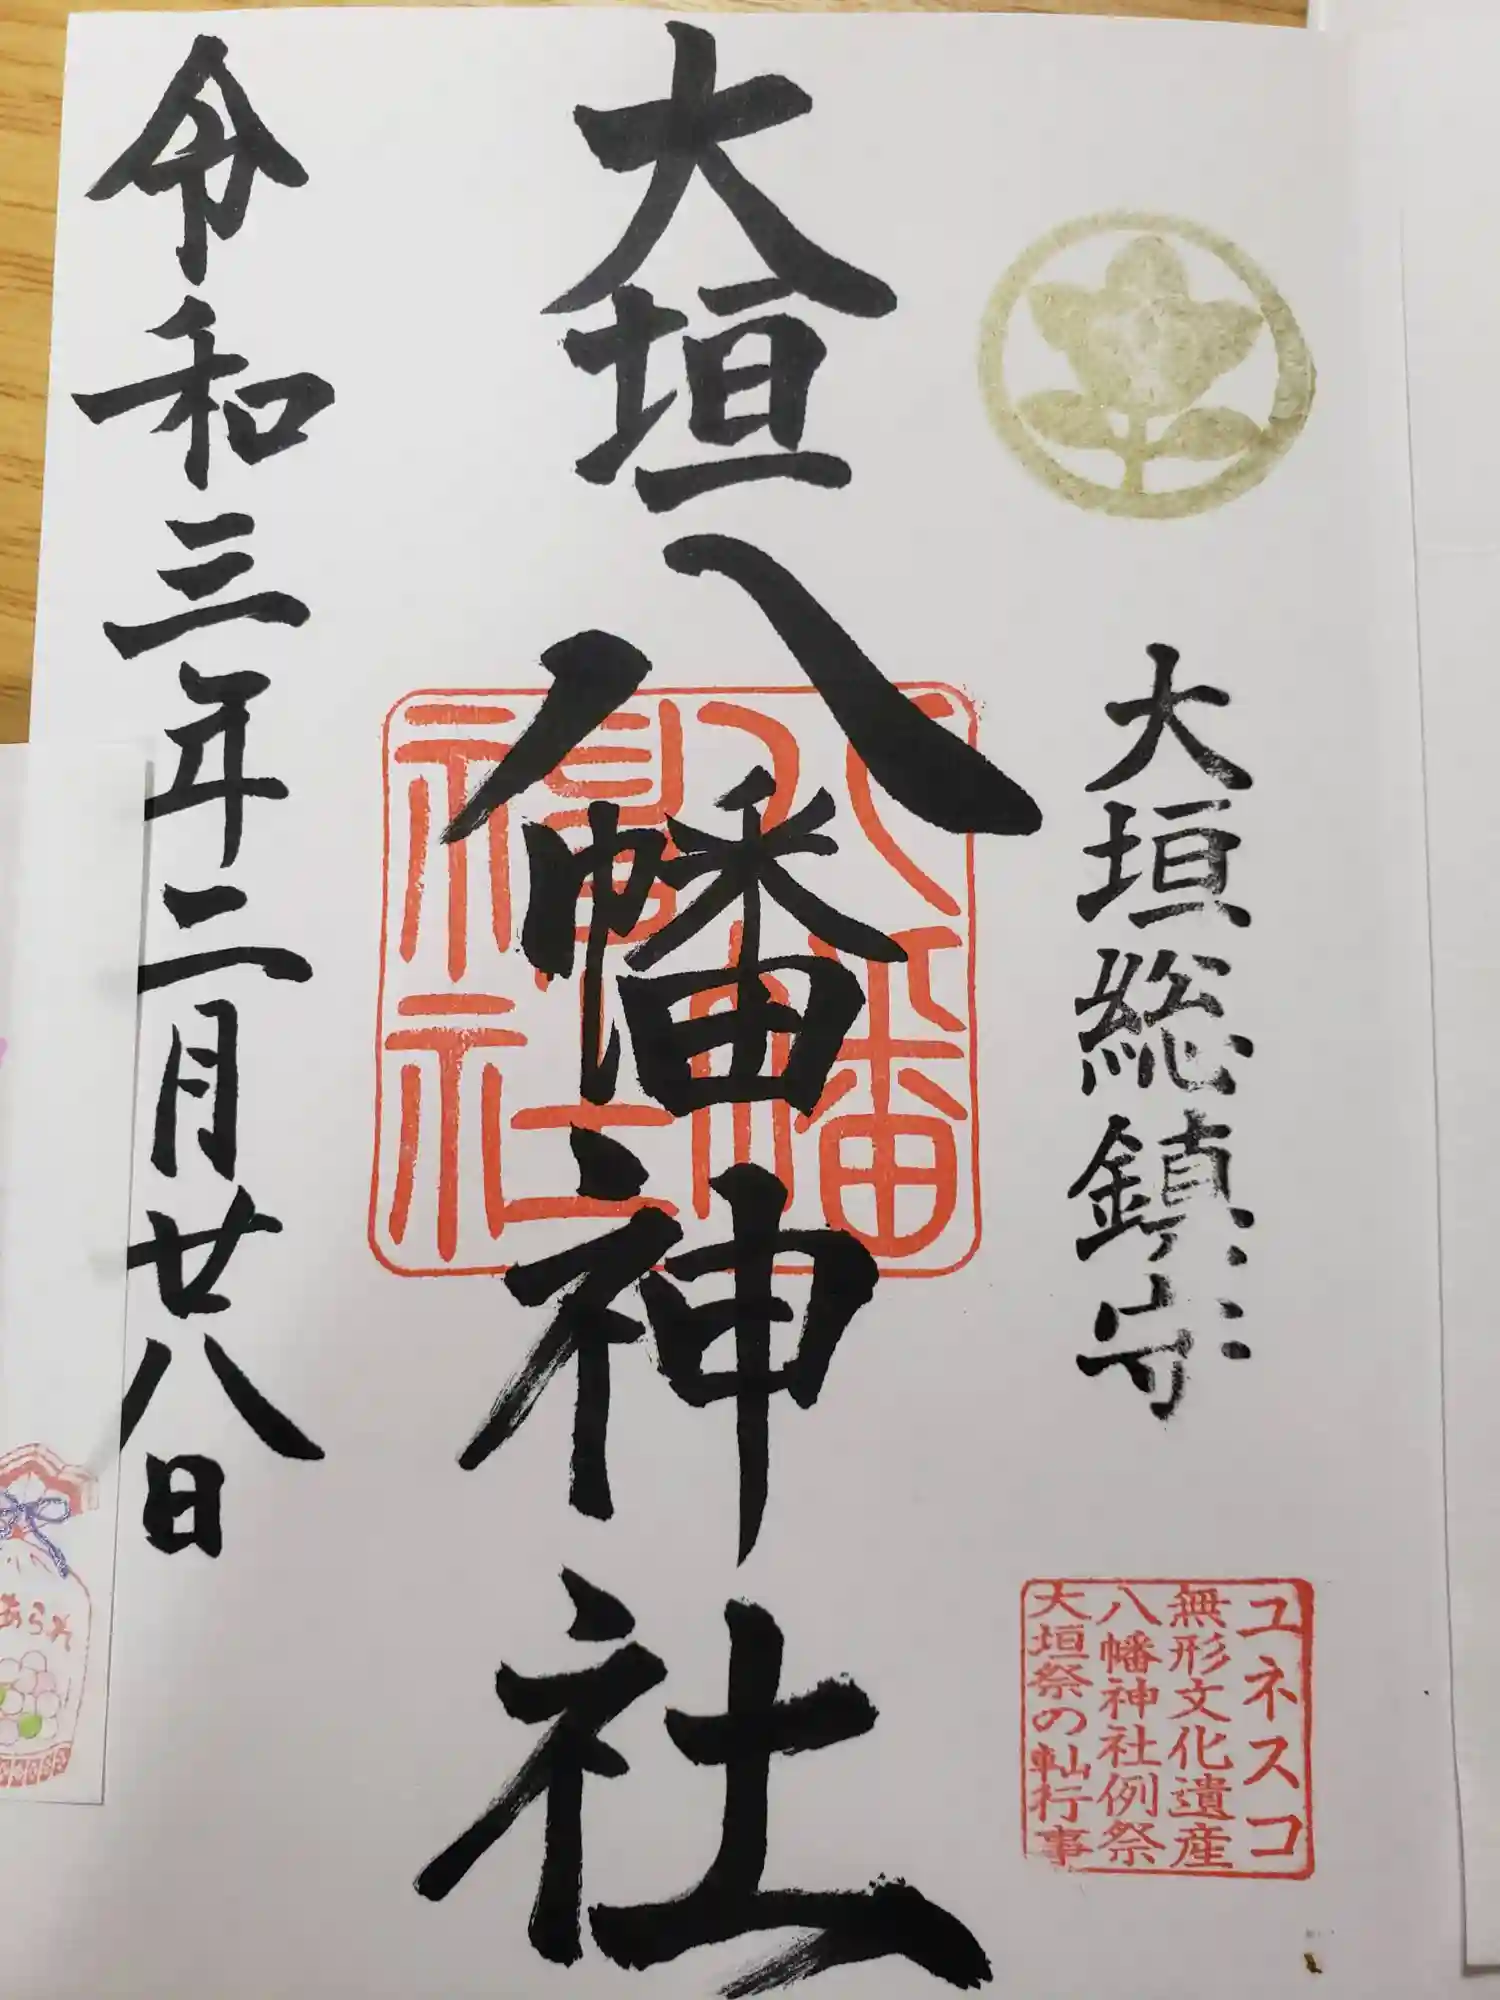 大垣総鎮守
ユネスコ
無形文化遺産
八幡神社例祭
大垣祭の軕行事
大垣八幡神社
八幡
神社
令和三年二月廿八日
あられ